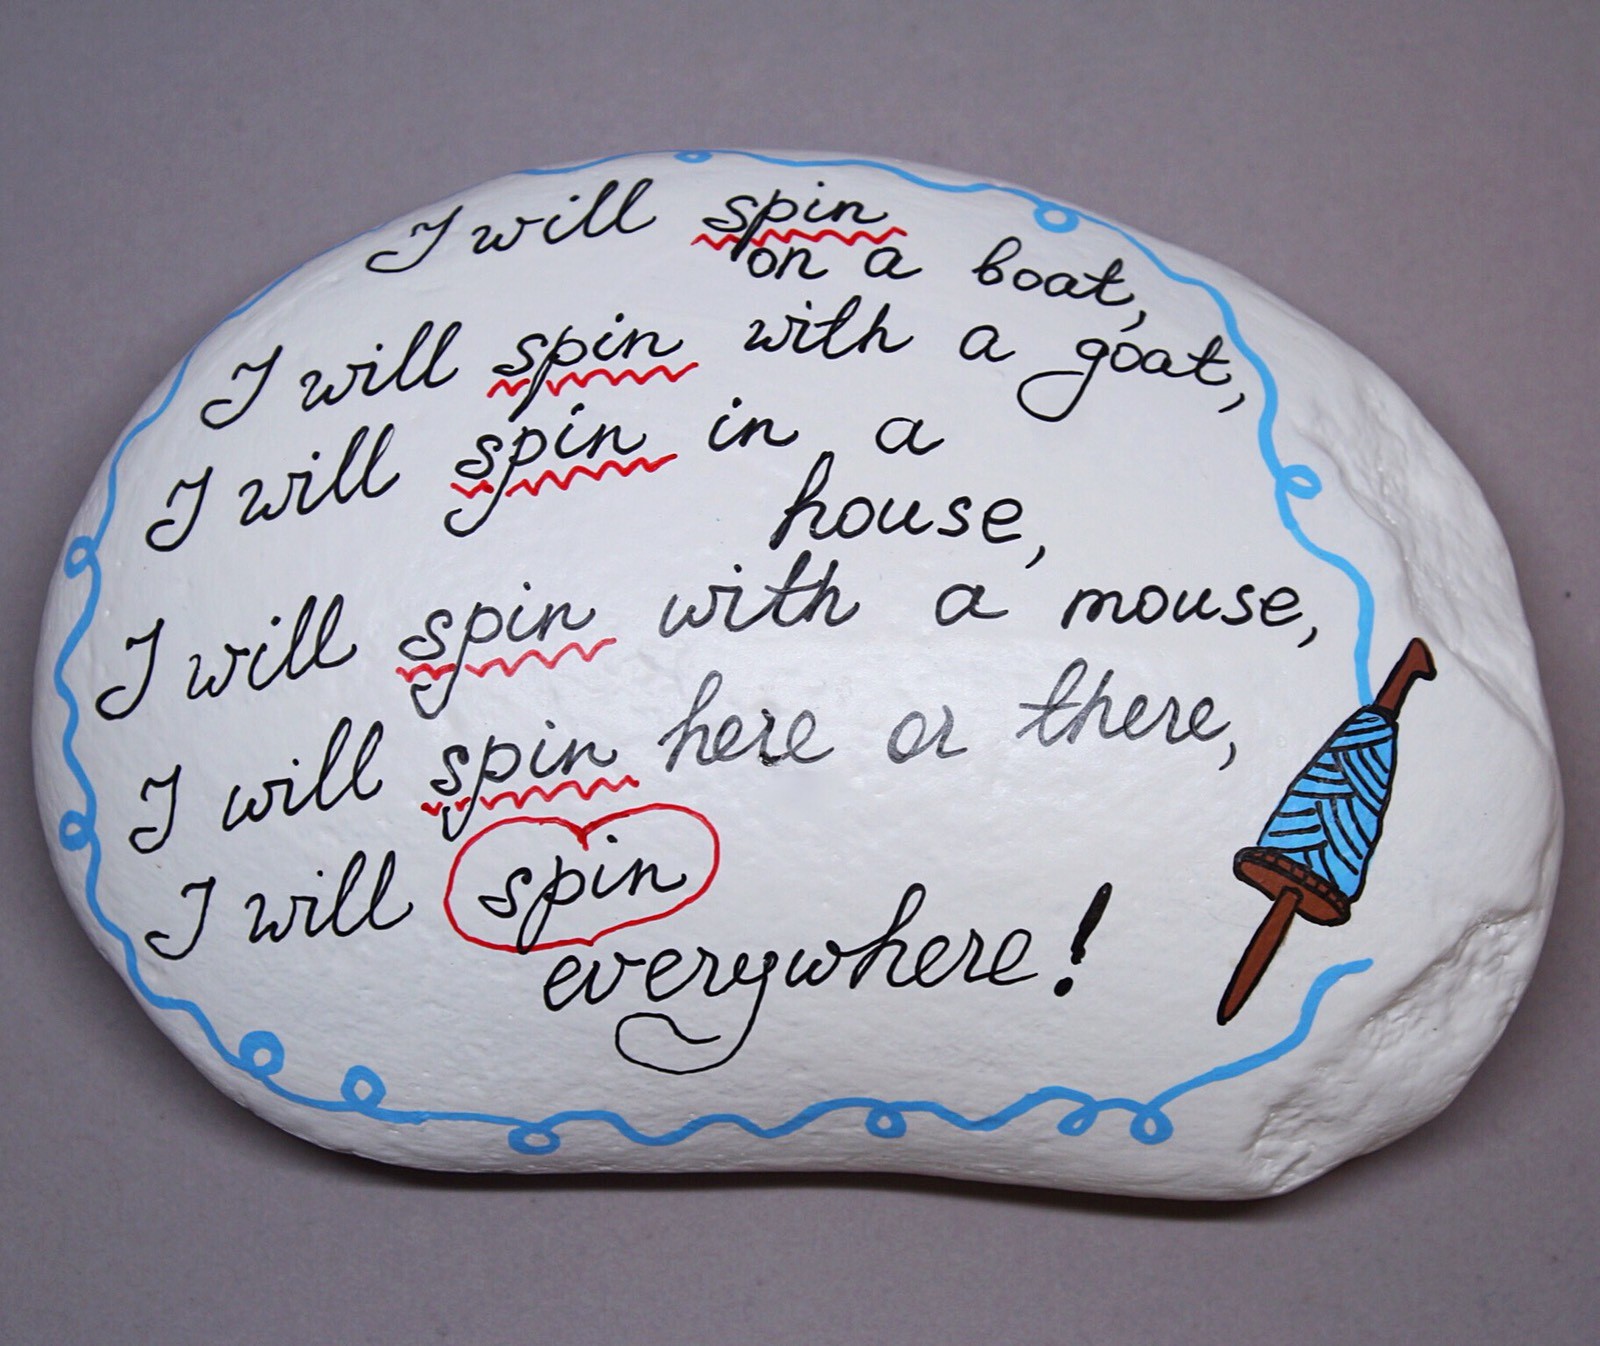 I will spin
on a boat,
I will spin with a goat,
I will spin in a
house,
I will spin with a mouse,
I will spin here or there,
I will spin
everywhere!